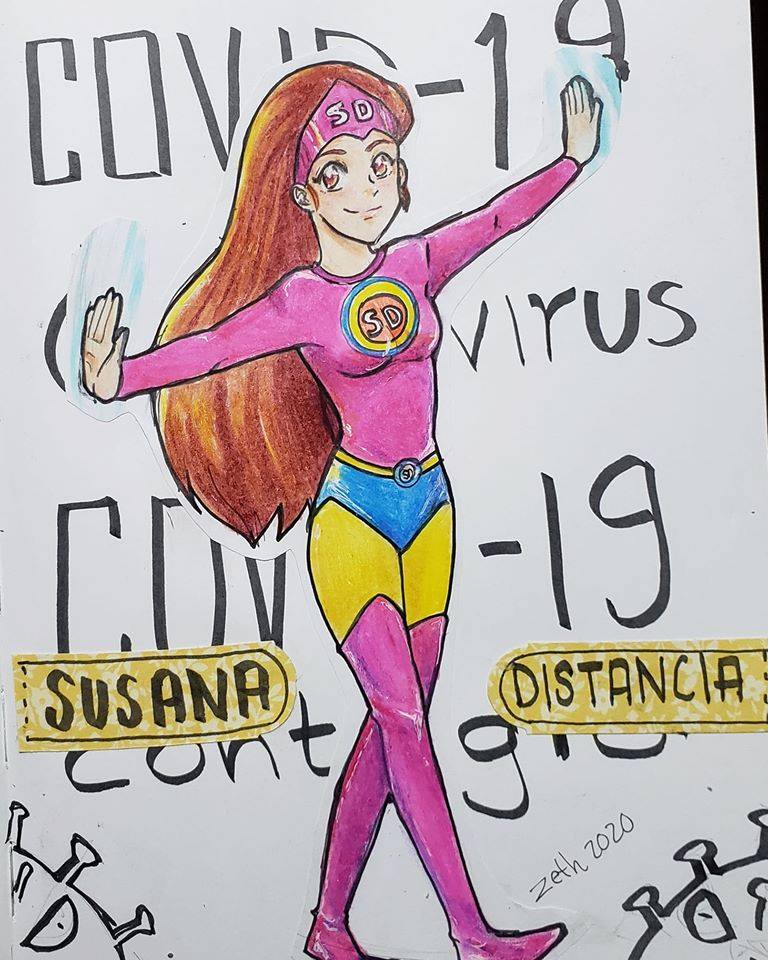 COVID-19
SD
SD
virus
COV -19
SD
SUSANA DISTANCIA
cont gio
zeth 2020